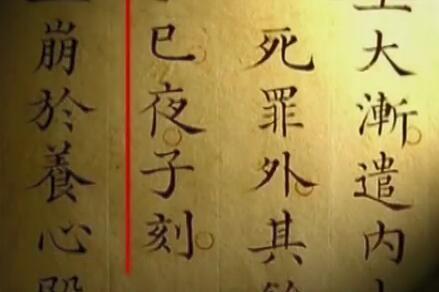 大漸遣内
死罪外其
巳夜子刻
崩於養心